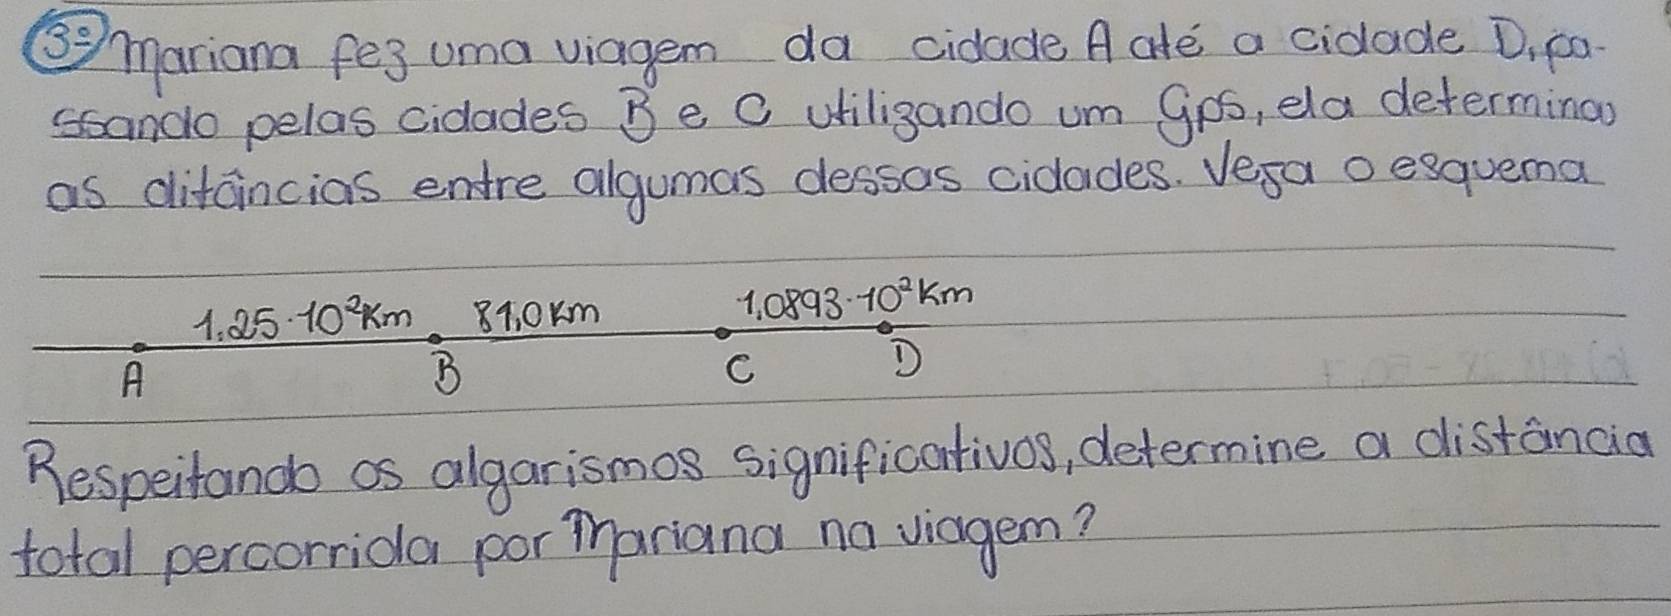 3º) Mariana fez uma viagem da cidade A até a cidade D, pa-
ssando pelas cidades B e C utilizando um Gps, ela determinou
as ditâncias entre algumas dessas cidades. Veja o esquema
1,25 · 10² Km 81,0 Km 1,0893 · 10² Km
A B C D
Respeitando os algarismos significativos, determine a distância
total percorrida por Mariana na viagem?